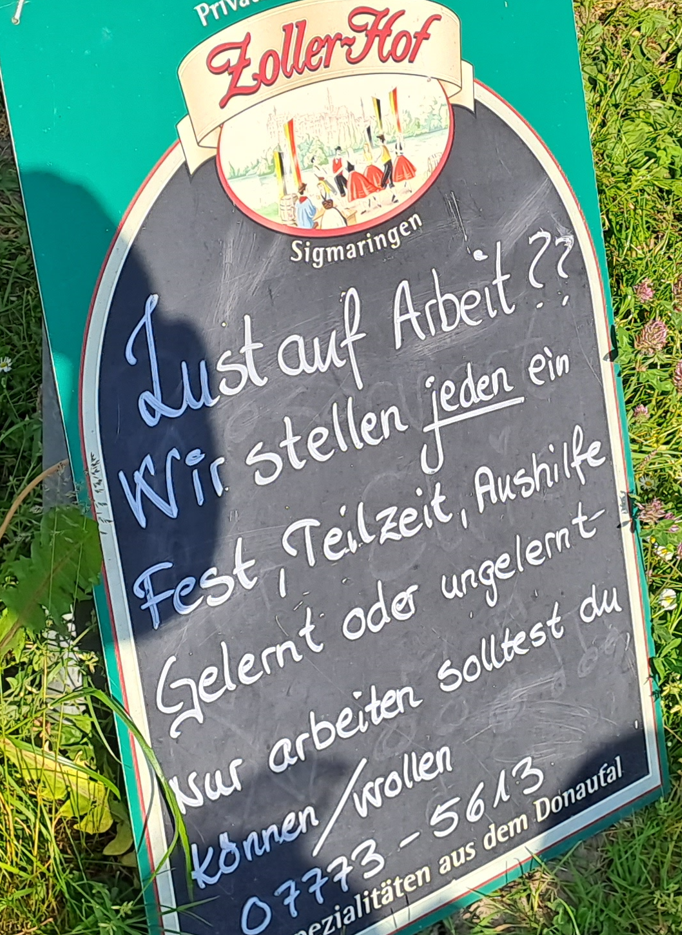 Zoller-Hof
Sigmaringen
Lust auf Arbeit??
Wir stellen jeden ein
Fest, Teilzeit, Aushilfe
Gelernt oder ungelernt-
Nur arbeiten solltest du
können/wollen
07773-5613
pezialitäten aus dem Donautal